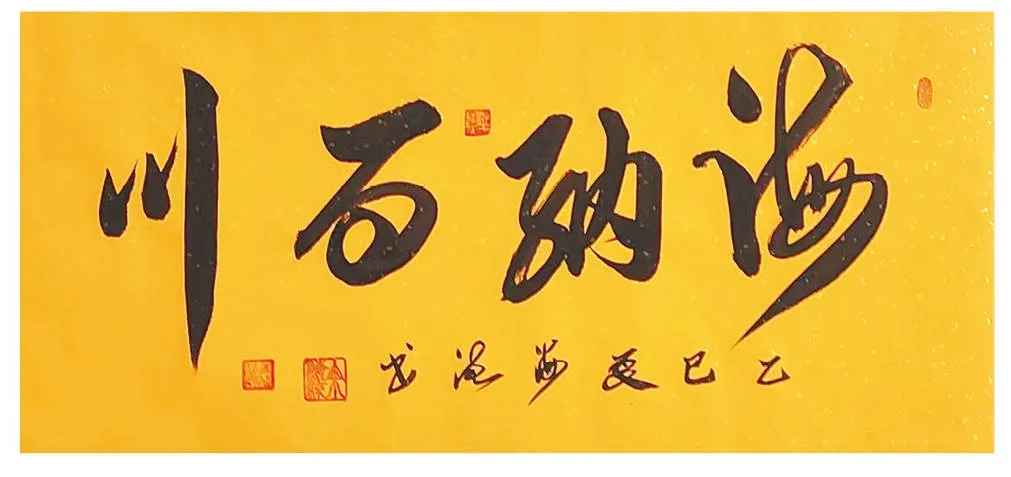 海纳百川
乙巳夏海滨书